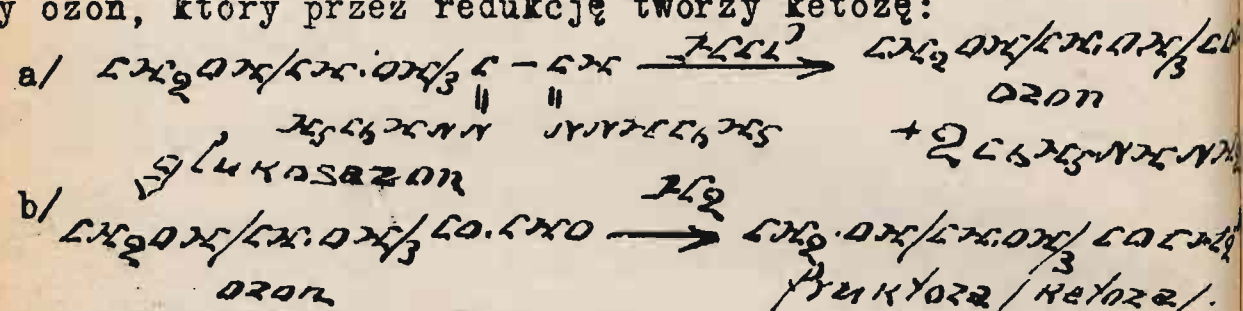 y ozon, który przez redukcję tworzy ketozę:
a/ CH2OH/CH·OH/3 C - CH → CH2OH/CH·OH/3 CO
ozon
H5C6HNN NNHC6H5 + 2C6H5NHNH
glukosazon
b/ CH2OH/CH·OH/3 CO·CHO → CH2·OH/CH·OH/3 COCH2
ozon fruktoza/ketoza/.